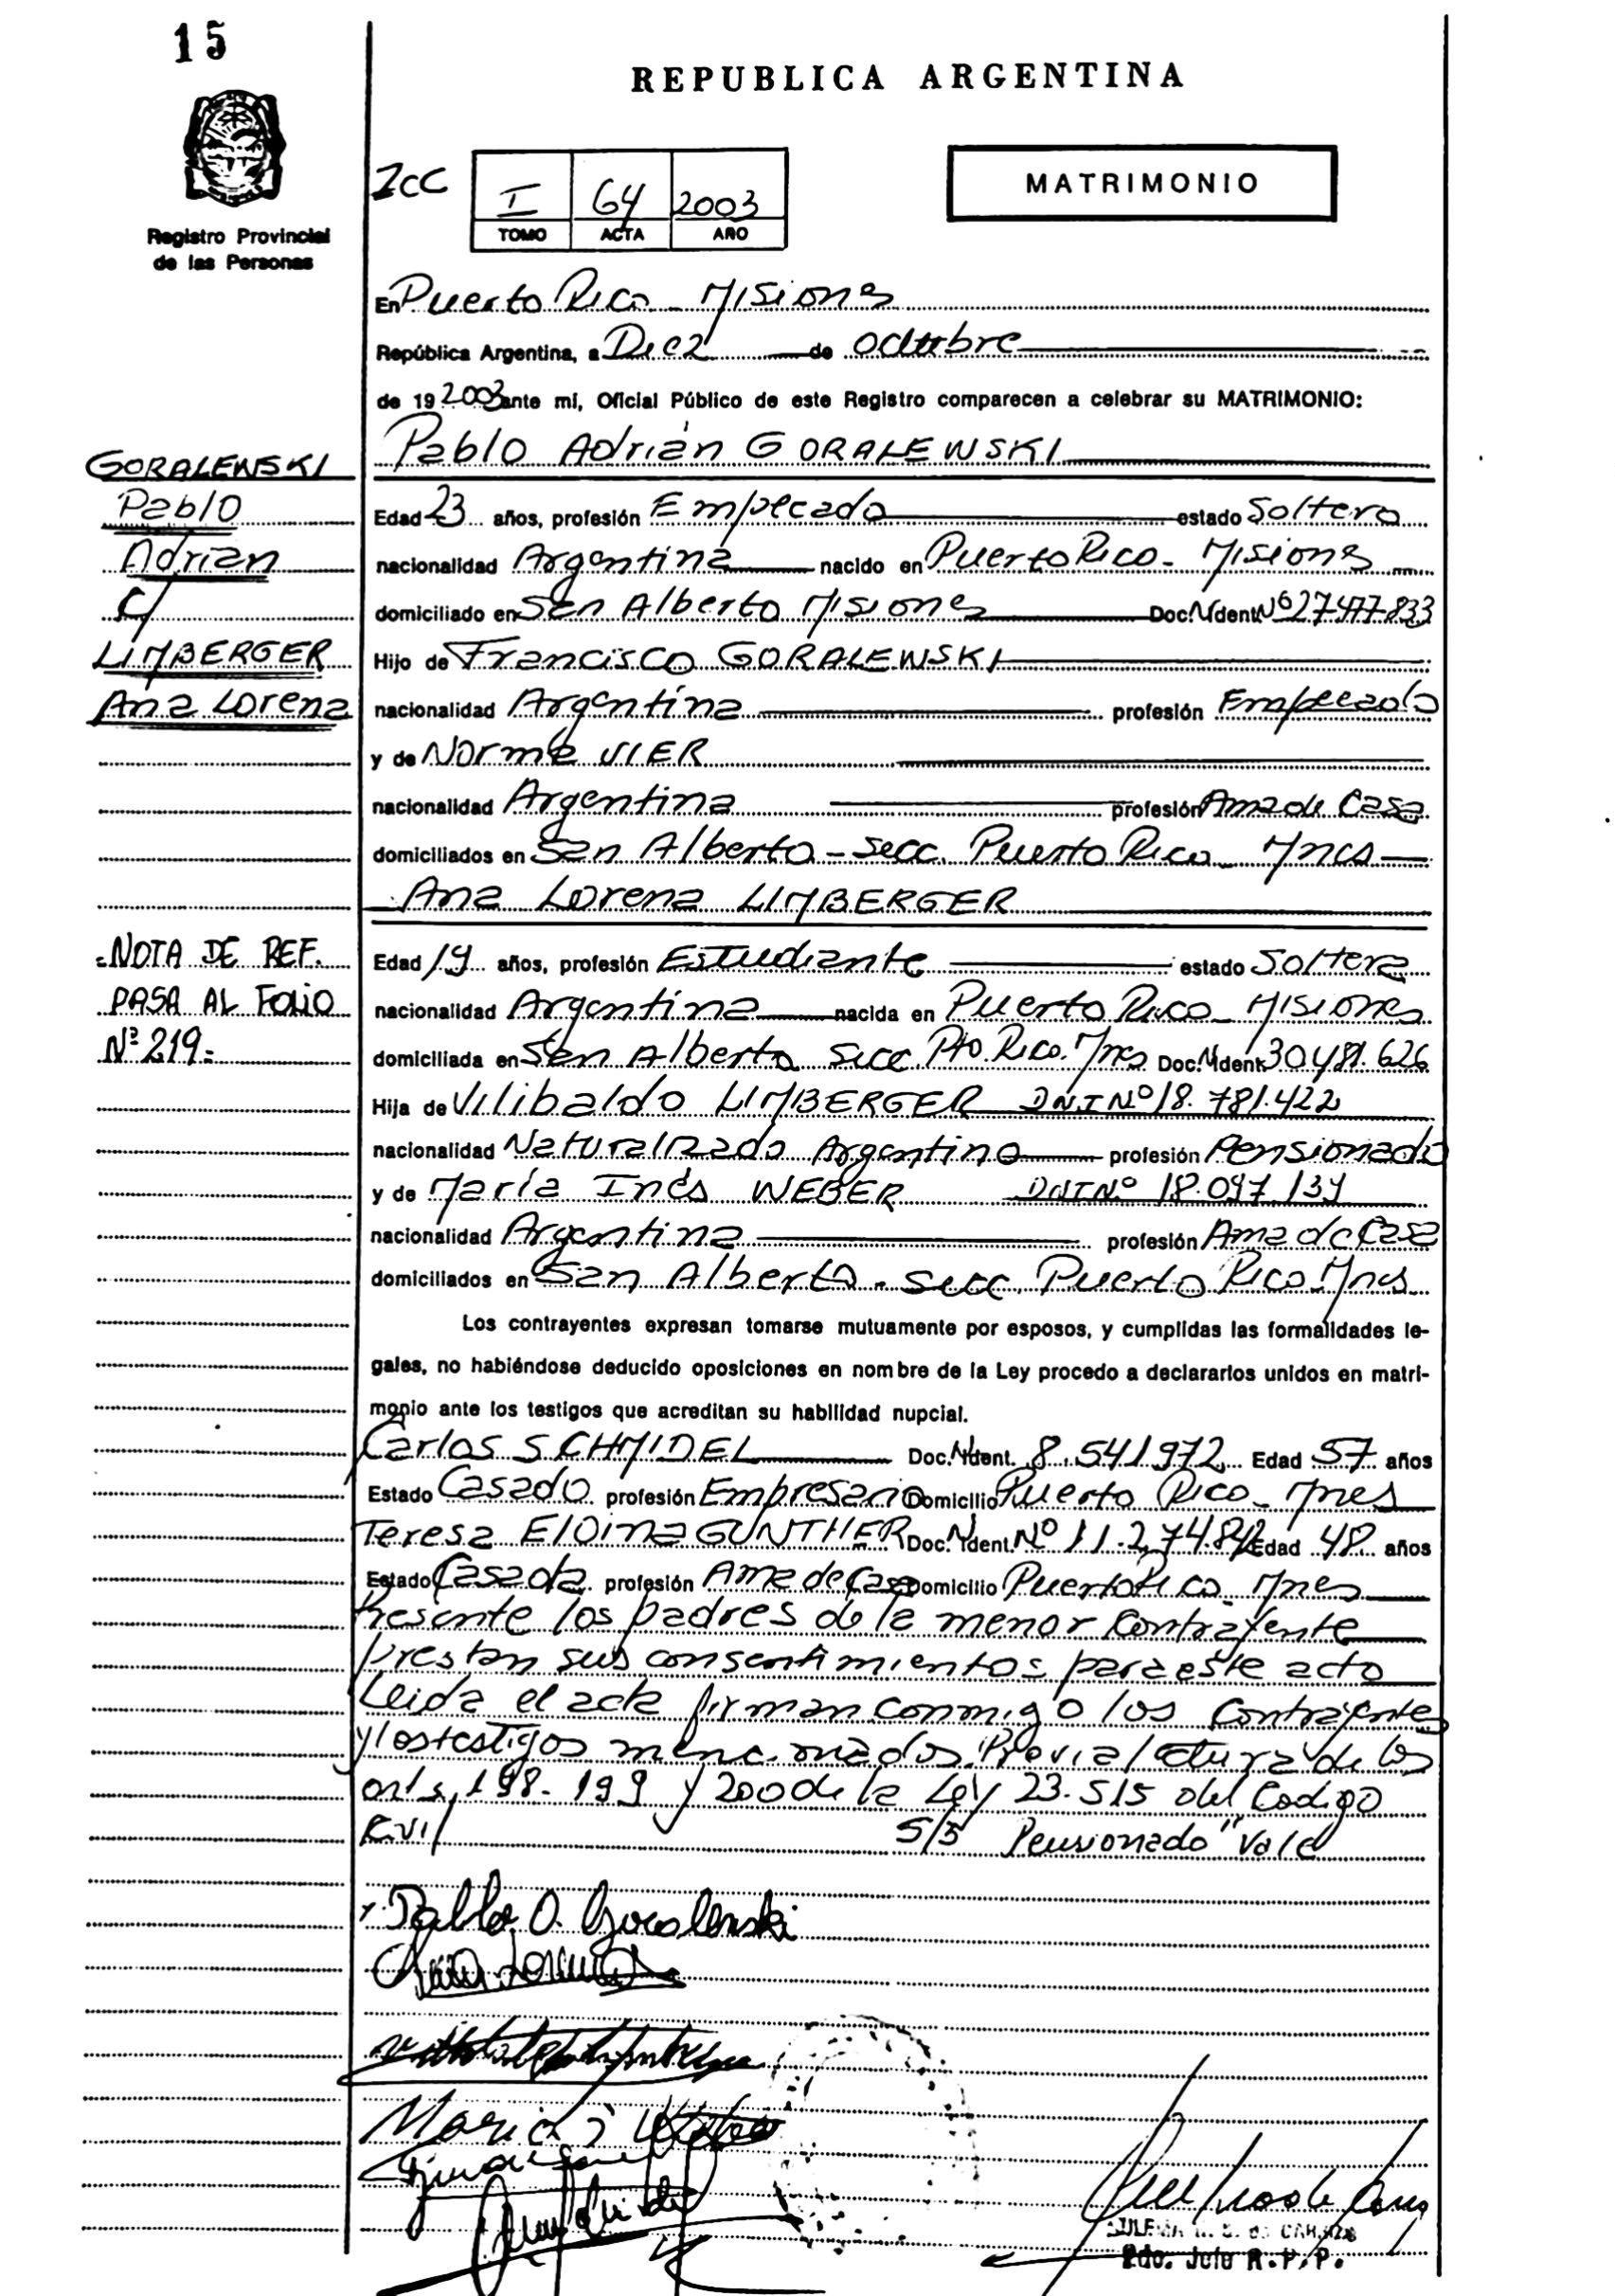 15
REPUBLICA ARGENTINA
Registro Provincial
de las Personas
ICC
I 64 2003
TOMO ACTA AÑO
MATRIMONIO
En Puerto Rico - Misiones
República Argentina, a Diez de octubre
de 19 2003 ante mí, Oficial Público de este Registro comparecen a celebrar su MATRIMONIO:
Pablo Adrián GORALEWSKI
GORALEWSKI
Pablo
Adrian
c/
LIMBERGER
Ana Lorena
Edad 23 años, profesión Empleado estado Soltero
nacionalidad Argentina nacido en Puerto Rico - Misiones
domiciliado en San Alberto Misiones Doc. N Ident. Nº 27.477.833
Hijo de Francisco GORALEWSKI
nacionalidad Argentina profesión Empleado
y de Norma VIER
nacionalidad Argentina profesión Ama de Casa
domiciliados en San Alberto - Secc. Puerto Rico - Mnes
Ana Lorena LIMBERGER
- NOTA DE REF.
PASA AL FOLIO
Nº 219.-
Edad 19 años, profesión Estudiante estado Soltera
nacionalidad Argentina nacida en Puerto Rico - Misiones
domiciliada en San Alberto Secc. Pto. Rico. Mnes Doc. N Ident. 30.481.626
Hija de Vilibaldo LIMBERGER DNI Nº 18.781.422
nacionalidad Naturalizado Argentino profesión Pensionado
y de María Inés WEBER DNI Nº 18.097.139
nacionalidad Argentina profesión Ama de Casa
domiciliados en San Alberto - Secc. Puerto Rico Mnes
Los contrayentes expresan tomarse mutuamente por esposos, y cumplidas las formalidades le-
gales, no habiéndose deducido oposiciones en nombre de la Ley procedo a declararlos unidos en matri-
monio ante los testigos que acreditan su habilidad nupcial.
Carlos SCHMIDEL Doc. N Ident. 8.541972 Edad 57 años
Estado Casado profesión Empresario Domicilio Puerto Rico - Mnes
Teresa Eloina GUNTHER Doc. N Ident. Nº 11.274.842 Edad 48 años
Estado Casada profesión Ama de Casa Domicilio Puerto Rico - Mnes
Presente los padres de la menor Contrayente
prestan sus consentimientos para este acto
Leida el acta firman conmigo los Contrayentes
y los testigos mencionados. Previa lectura de los
arts, 198-199 y 200 de la Ley 23.515 del Codigo
Civil S/5 Pensionado" Vale
Pablo A. Goralewski
Ana Lorena
María I Weber
Pdo. Jefe R.P.P.